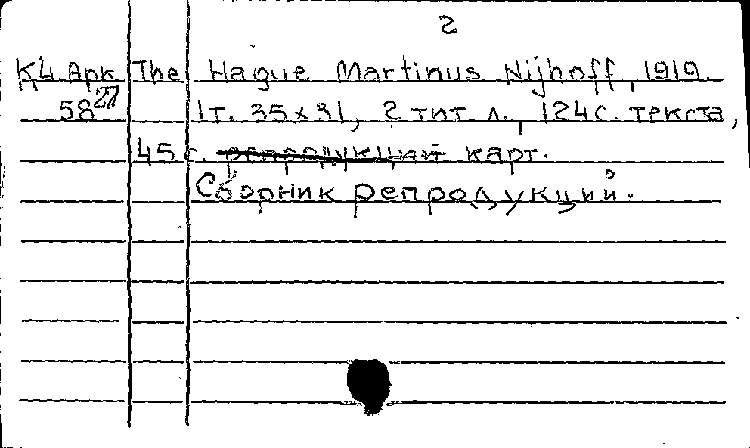 2
К4 Арк The Hague Martinus Nijhoff, 1919.
58 27 1т. 35х31, 2 тит л., 124 с. текста,
45 с. репродукций карт.
Сборник репродукций.